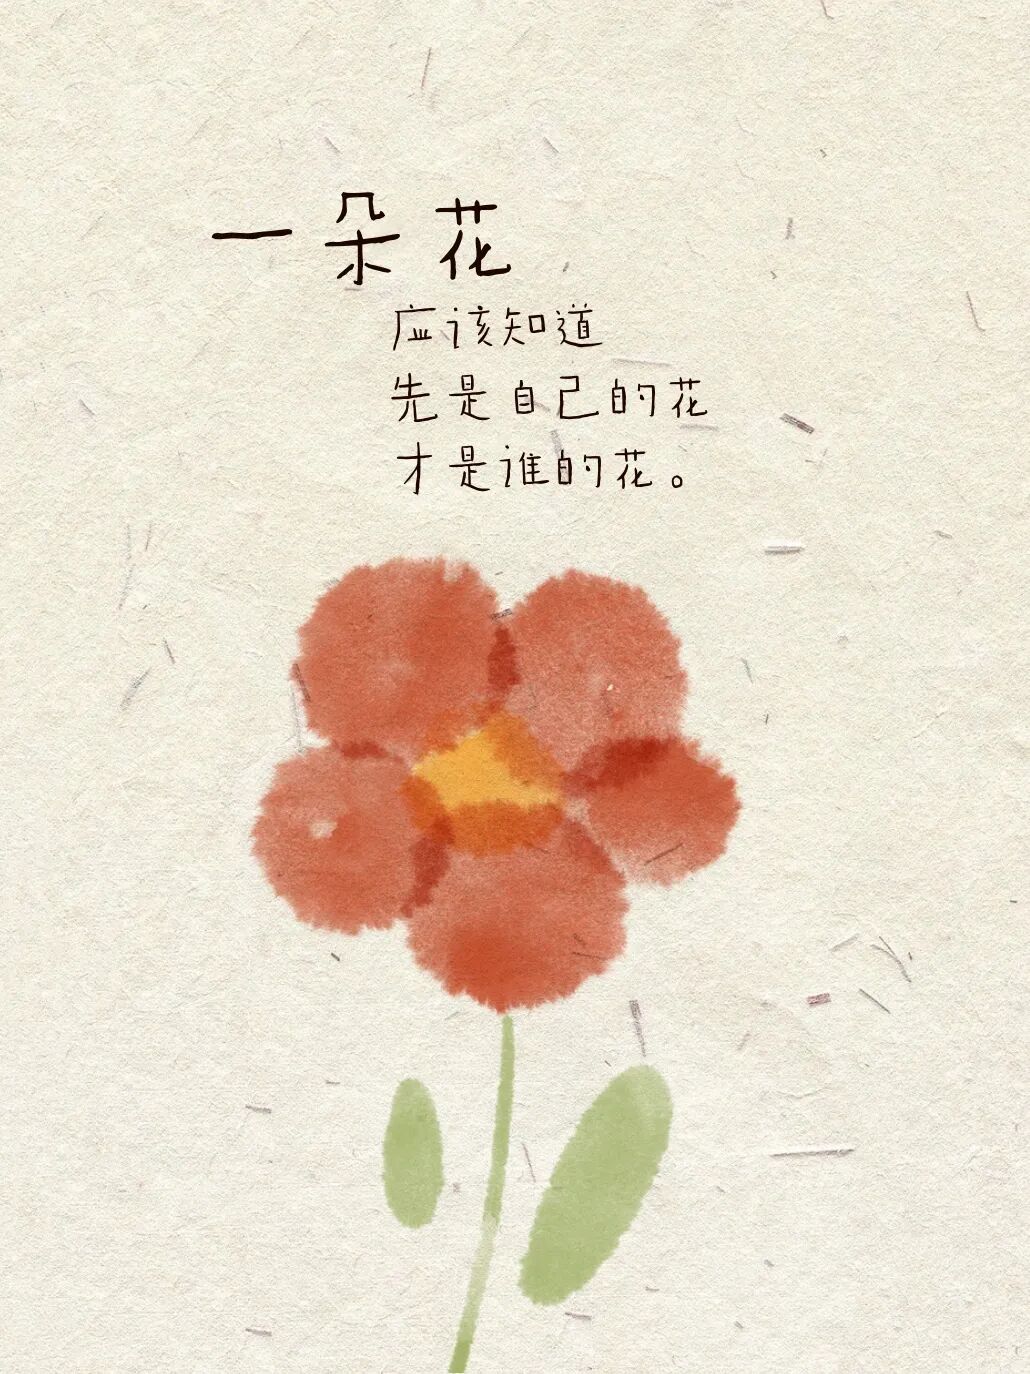 一朵花
应该知道
先是自己的花
才是谁的花。